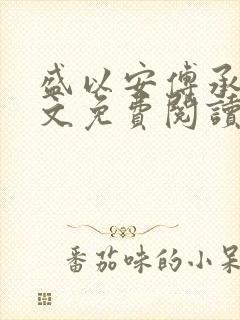 盛以安傅承
文免費閱讀
番茄味的小呆